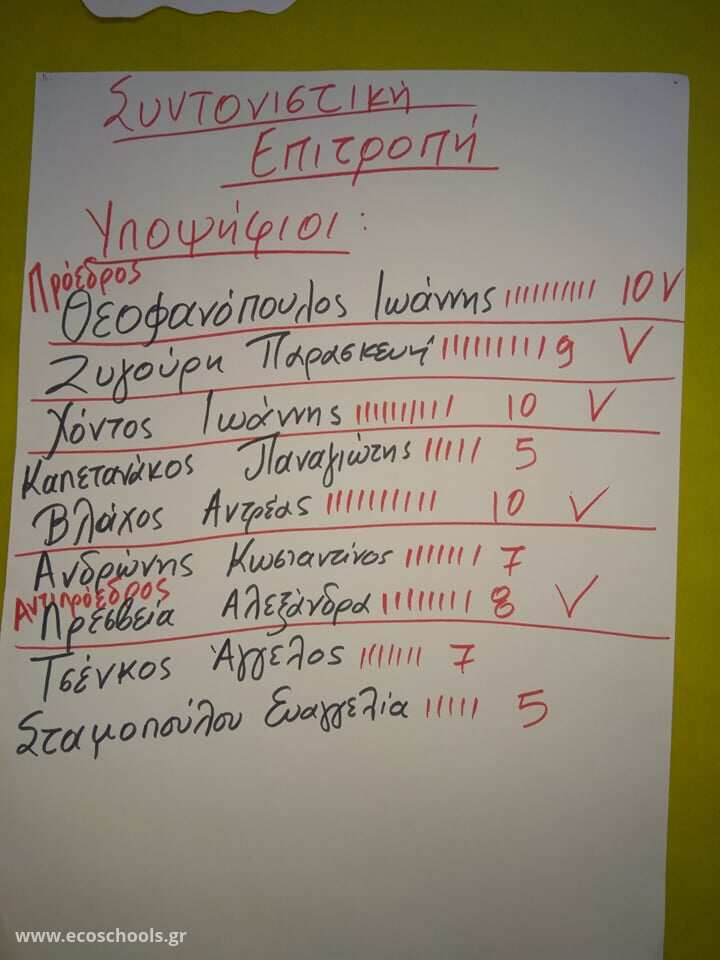 Συντονιστική
Επιτροπή
Υποψήφιοι :
Πρόεδρος
Θεοφανόπουλος Ιωάννης |||||||||| 10 V
Ζυγούρη Παρασκευή ||||||||| 9 V
Χόντος Ιωάννης |||||||||| 10 V
Καπετανάκος Παναγιώτης ||||| 5
Βλάχος Αντρέας |||||||||| 10 V
Ανδρώνης Κωσταντίνος ||||||| 7
Αντιπρόεδρος
Πρεσβεία Αλεξάνδρα |||||||| 8 V
Τσένκος Άγγελος ||||||| 7
Σταμοπούλου Ευαγγελία ||||| 5
www.ecoschools.gr